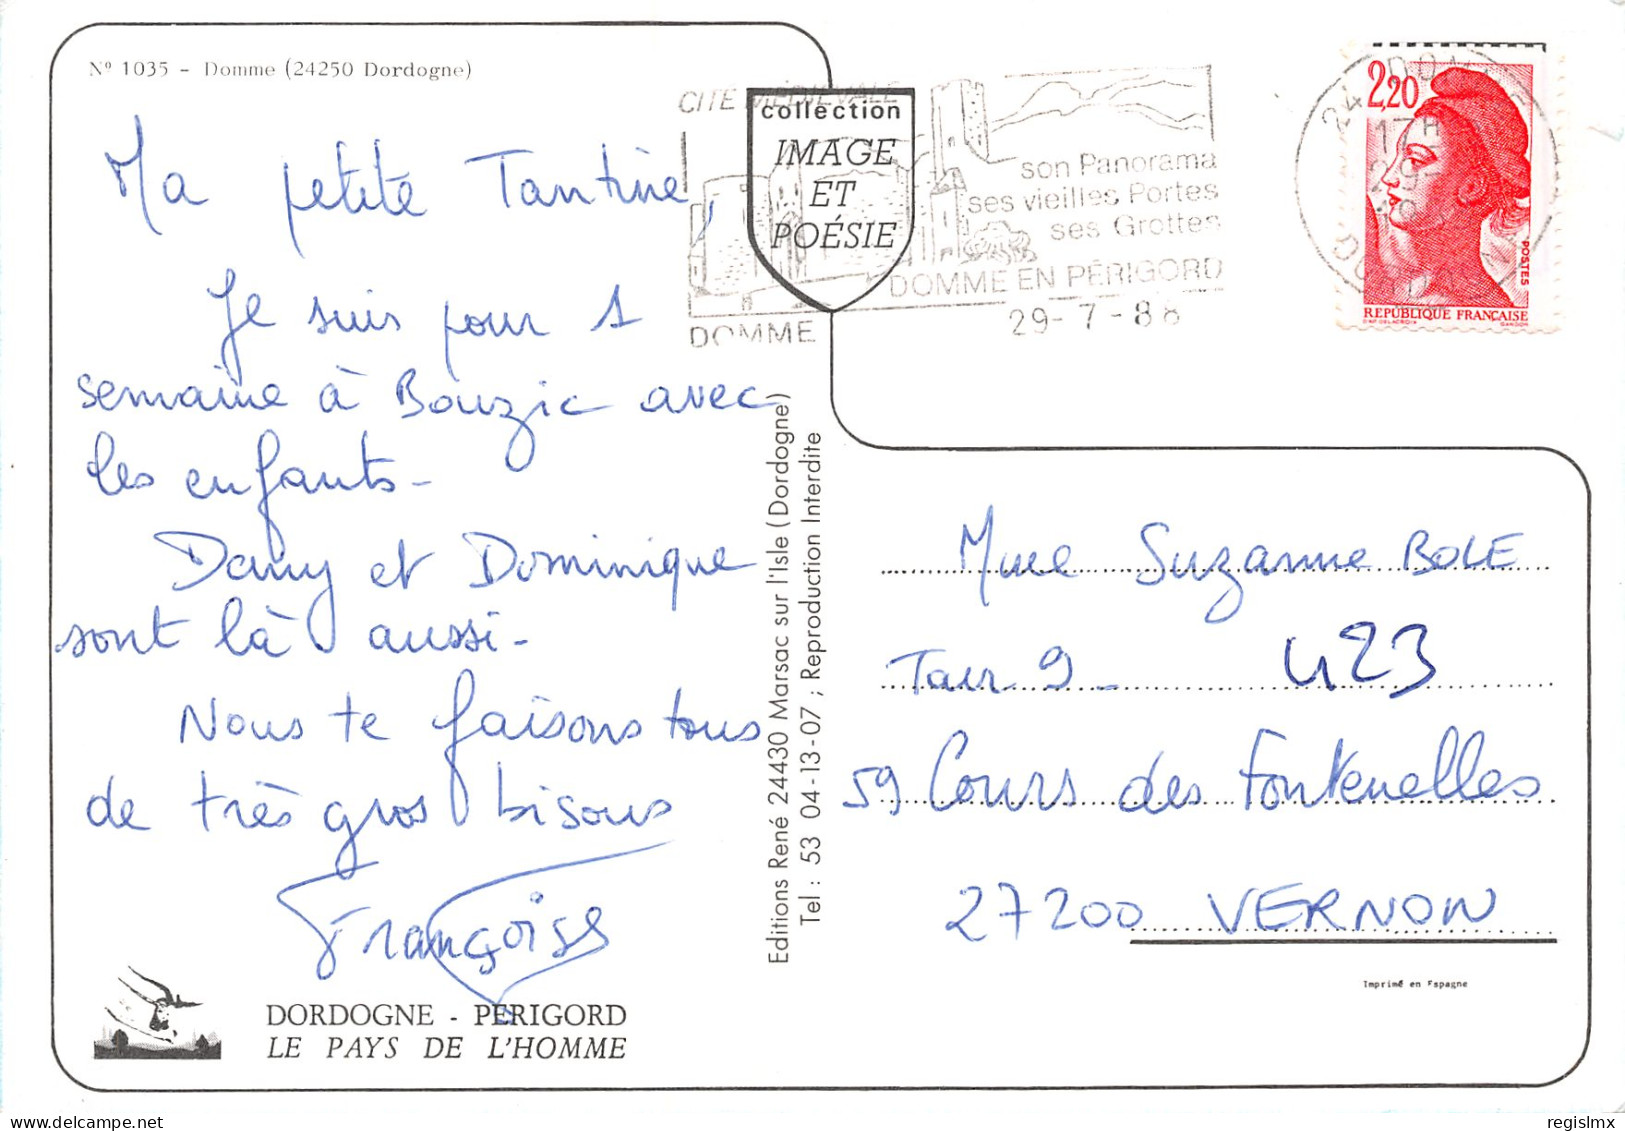 Nº 1035 - Domme (24250 Dordogne)
Ma petite Tantine,
Je suis pour 1
semaine à Bouzic avec
les enfants-
Dany et Dominique
sont là aussi-
Nous te faisons tous
de très gros bisous
Françoise
DORDOGNE - PÉRIGORD
LE PAYS DE L'HOMME
CITE MÉDIÉVALE
collection
IMAGE
ET
POÉSIE
son Panorama
ses vieilles Portes
ses Grottes
DOMME EN PÉRIGORD
DOMME
29-7-88
Editions René 24430 Marsac sur l'Isle (Dordogne)
Tel : 53 04-13-07 ; Reproduction Interdite
2,20
POSTES
RÉPUBLIQUE FRANÇAISE
Mme Suzanne BOLE
Tour 9- 423
59 Cours des Fontenelles
27200 VERNON
Imprimé en Espagne
regislmx